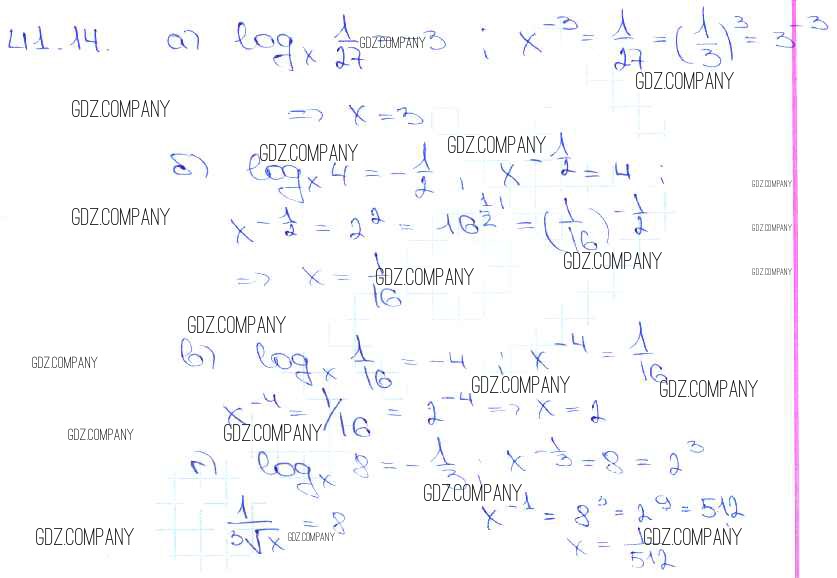 41.14. а) log_x 1/27 = -3 ; x^-3 = 1/27 = (1/3)^3 = 3^-3
GDZ.COMPANY
GDZ.COMPANY
GDZ.COMPANY
=> x = 3
GDZ.COMPANY GDZ.COMPANY
б) log_x 4 = -1/2 ; x^-1/2 = 4 ;
GDZ.COMPANY
GDZ.COMPANY
x^-1/2 = 2^2 = 16^1/2 = (1/16)^-1/2
GDZ.COMPANY
GDZ.COMPANY
=> x = 1/16
GDZ.COMPANY
GDZ.COMPANY
GDZ.COMPANY
в) log_x 1/16 = -4 ; x^-4 = 1/16
GDZ.COMPANY
GDZ.COMPANY GDZ.COMPANY
x^-4 = 1/16 = 2^-4 => x = 2
GDZ.COMPANY GDZ.COMPANY
г) log_x 8 = -1/3 ; x^-1/3 = 8 = 2^3
GDZ.COMPANY
1/3√x = 8 x^-1 = 8^3 = 2^9 = 512
GDZ.COMPANY GDZ.COMPANY GDZ.COMPANY
x = 1/512